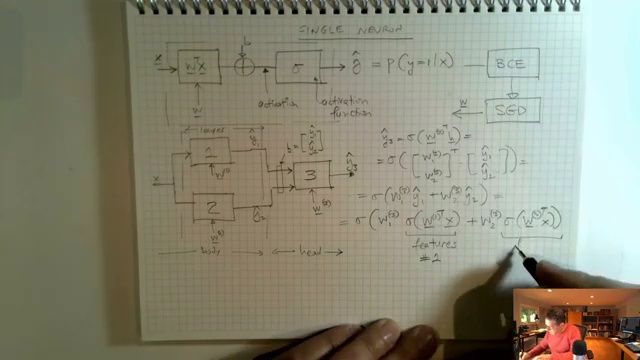 SINGLE NEURON
x wᵀx b σ ŷ = p(y=1|x) BCE
w activation activation function w SGD
layer ŷ₁ h = [ŷ₁ ŷ₂]
x 1 w⁽¹⁾ 3 ŷ₃ w⁽³⁾
2 ŷ₂ w⁽²⁾
body head
ŷ₃ = σ(w⁽³⁾ᵀ h)
= σ([w₁⁽³⁾ w₂⁽³⁾]ᵀ [ŷ₁ ŷ₂]) =
= σ(w₁⁽³⁾ ŷ₁ + w₂⁽³⁾ ŷ₂) =
= σ(w₁⁽³⁾ σ(w⁽¹⁾ᵀx) + w₂⁽³⁾ σ(w⁽²⁾ᵀx))
features
#2